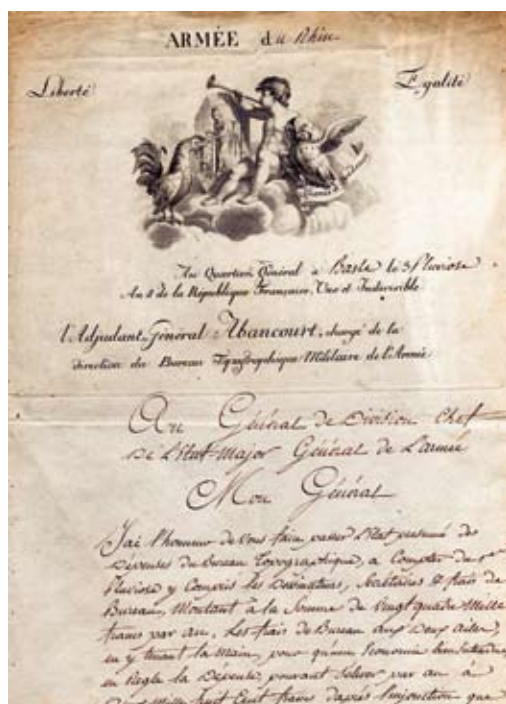 ARMÉE du Rhin
Liberté
Egalité
Au Quartier Général à Basle le 3 Pluviose
An 8 de la République Française, Une et Indivisible
l'Adjudant Général Abancourt, chargé de la
direction du Bureau Topographique Militaire de l'Armée
Au Général de Division Chef
De L'Etat-major Général de L'armée
Mon Général
J'ai l'honneur de Vous faire passer L'Etat présumé des
Dépenses du Bureau Topographique, a Compter du 1er
Pluviose y Compris les Dessinateurs, Secrétaires & frais de
Bureau, Montant à la Somme de Vingt quatre Mille
francs par an. Les frais de Bureau
en y tenant la Main, pour qu'une Economie bien Entendue
en Regle la Depense, pouvant Solver par an à
Mille huit Cent francs d'après l'injonction que